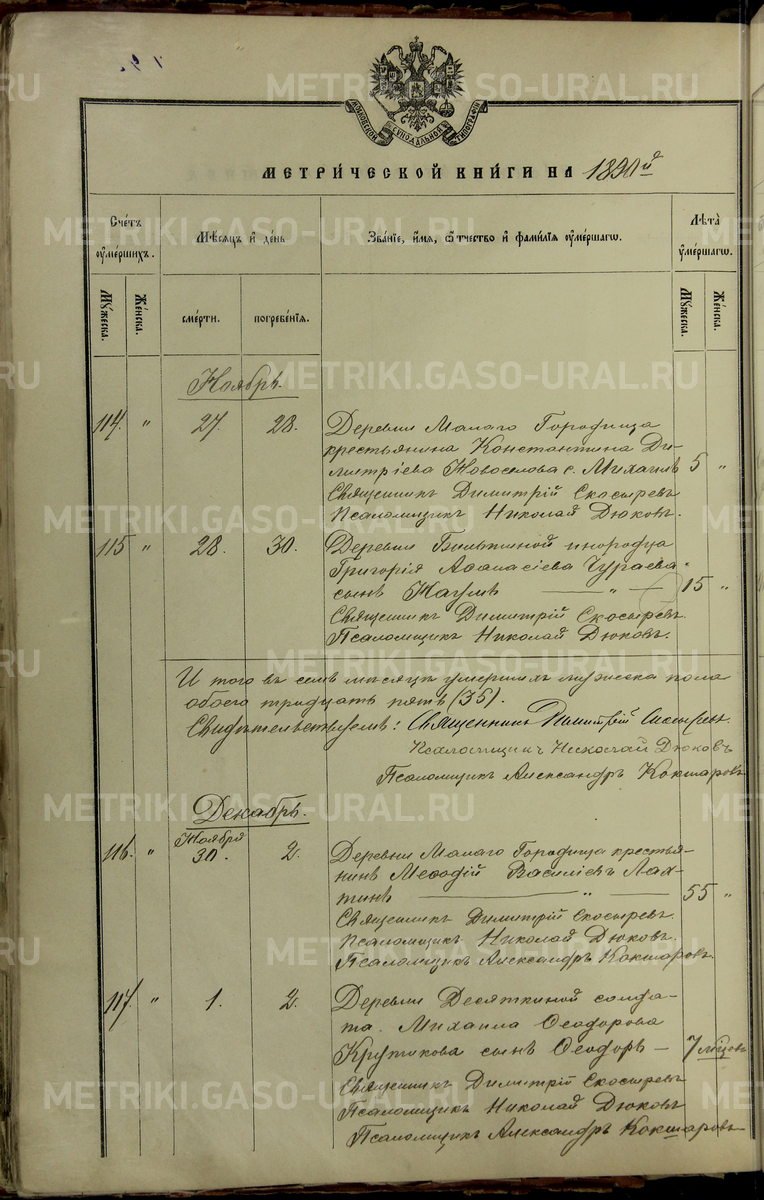 МОСКОВСКОЙ СѴНОДАЛЬНОЙ ТИПОГРАФІИ
МЕТРИ́ЧЕСКОЙ КНИ́ГИ НА 1890й
Сче́тъ ᲂу҆ме́ршихъ.
Мѣ́сяцъ и҆ де́нь
Зва́нїе, и҆́мя, ѻ҆́тчество и҆ фами́лїя ᲂу҆ме́ршагѡ.
Лѣ́та ᲂу҆ме́ршагѡ.
Мꙋ́жеска.
Же́нска.
сме́рти.
погребе́нїя.
Мꙋ́жеска.
Же́нска.
Ноябрь.
114. " 27. 28. Деревни Малаго Городища
крестьянина Константина Ди-
митріева Новоселова с. Михаилъ 5 "
Священникъ Димитрій Скосыревъ
Псаломщикъ Николай Дюковъ.
115 " 28. 30. Деревни Бильткиной инородца
Григорія Аѳанасіева Чураева
сынъ Наумъ — " — 15 "
Священникъ Димитрій Скосыревъ.
Псаломщикъ Николай Дюковъ.
И того въ семъ мѣсяцѣ умершихъ мужеска пола
обоего тридцать пять (35).
Свидѣтельствуемъ: Священникъ Димитрій Скосыревъ.
Псаломщикъ Николай Дюковъ
Псаломщикъ Александръ Кокшаровъ
Декабрь.
Ноября
116. " 30. 2. Деревни Малаго Городища крестья-
нинъ Меѳодій Василіевъ Лап-
тинъ — " — 55 "
Священникъ Димитрій Скосыревъ.
Псаломщикъ Николай Дюковъ.
Псаломщикъ Александръ Кокшаровъ.
117. " 1. 2. Деревни Десяткиной солда-
та Михаила Ѳеодорова
Крутикова сынъ Ѳеодоръ — 7 мѣцовъ
Священникъ Димитрій Скосыревъ
Псаломщикъ Николай Дюковъ
Псаломщикъ Александръ Кокшаровъ
METRIKI.GASO-URAL.RU